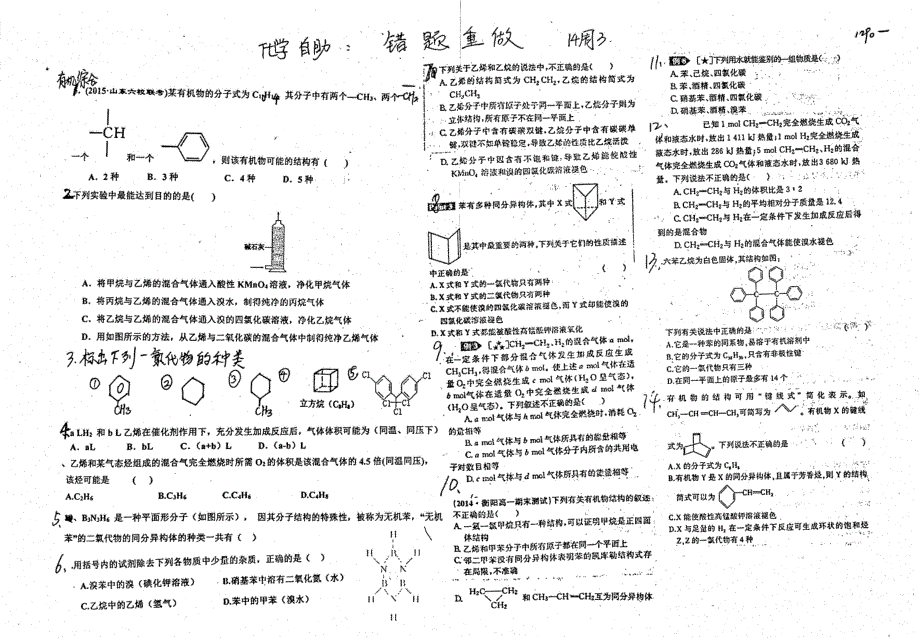 化学自助：错题重做 14周3.
有机综合
1. (2015·山东六校联考)某有机物的分子式为C₁₃H₁₄, 其分子中有两个—CH₃、两个—CH₂—
—CH
一个 和一个 ，则该有机物可能的结构有（ ）
A．2种 B．3种 C．4种 D．5种
2.下列实验中最能达到目的的是( )
碱石灰
A．将甲烷与乙烯的混合气体通入酸性KMnO₄溶液，净化甲烷气体
B．将丙烷与乙烯的混合气体通入溴水，制得纯净的丙烷气体
C．将乙烷与乙烯的混合气体通入溴的四氯化碳溶液，净化乙烷气体
D．用如图所示的方法，从乙烯与二氧化碳的混合气体中制得纯净乙烯气体
3. 标出下列一氯代物的种类
① ② ③ ④ ⑤
CH₃ CH₃ 立方烷（C₈H₈） Cl Cl Cl Cl
4.a LH₂ 和 b L乙烯在催化剂作用下，充分发生加成反应后，气体体积可能为（同温、同压下）
A．aL B．bL C．(a+b)L D．(a-b)L
、乙烯和某气态烃组成的混合气完全燃烧时所需O₂的体积是该混合气体的4.5倍(同温同压),
该烃可能是 ( )
A.C₂H₆ B.C₃H₆ C.C₄H₈ D.C₄H₈
5、B₃N₃H₆ 是一种平面形分子（如图所示）， 因其分子结构的特殊性，被称为无机苯，“无机
苯”的二氯代物的同分异构体的种类一共有（ ）
6、用括号内的试剂除去下列各物质中少量的杂质，正确的是（ ）
A.溴苯中的溴（碘化钾溶液） B.硝基苯中溶有二氧化氮（水）
C.乙烷中的乙烯（氢气） D.苯中的甲苯（溴水）
H H B N N B B N H H H H
下列关于乙烯和乙烷的说法中,不正确的是( )
A.乙烯的结构简式为CH₂CH₂,乙烷的结构简式为
CH₃CH₃
B.乙烯分子中所有原子处于同一平面上,乙烷分子则为
立体结构,所有原子不在同一平面上
C.乙烯分子中含有碳碳双键,乙烷分子中含有碳碳单
键,双键不如单键稳定,导致乙烯的性质比乙烷活泼
D.乙烯分子中因含有不饱和键,导致乙烯能使酸性
KMnO₄溶液和溴的四氯化碳溶液褪色
8 苯有多种同分异构体,其中X式 和Y式
是其中最重要的两种,下列关于它们的性质描述
中正确的是 ( )
A.X式和Y式的一氯代物只有两种
B.X式和Y式的二氯代物只有两种
C.X式不能使溴的四氯化碳溶液褪色,而Y式却能使溴的
四氯化碳溶液褪色
D.X式和Y式都能被酸性高锰酸钾溶液氧化
9 例5 [★]CH₂═CH₂、H₂的混合气体a mol,
在一定条件下部分混合气体发生加成反应生成
CH₃CH₃,得混合气体b mol。使上述a mol气体在适
量O₂中完全燃烧生成c mol气体(H₂O呈气态),
b mol气体在适量O₂中完全燃烧生成d mol气体
(H₂O呈气态)。下列叙述不正确的是( )
A.a mol气体与b mol气体完全燃烧时,消耗O₂
的量相等
B.a mol气体与b mol气体所具有的能量相等
C.a mol气体与b mol气体分子内所含的共用电
子对数目相等
D.c mol气体与d mol气体所具有的能量相等
10、
(2014·衡阳高一期末测试)下列有关有机物结构的叙述
不正确的是( )
A.一氯一氟甲烷只有一种结构,可以证明甲烷是正四面
体结构
B.乙烯和甲苯分子中所有原子都在同一个平面上
C.邻二甲苯没有同分异构体表明苯的凯库勒结构式存
在局限,不准确
D. H₂C—CH₂ CH₂ 和 CH₃—CH═CH₂互为同分异构体
11. 例6 [★]下列用水就能鉴别的一组物质是( )
A.苯、己烷、四氯化碳
B.苯、酒精、四氯化碳
C.硝基苯、酒精、四氯化碳
D.硝基苯、酒精、溴苯
12、 已知1 mol CH₂═CH₂完全燃烧生成CO₂气
体和液态水时,放出1 411 kJ热量;1 mol H₂完全燃烧生成
液态水时,放出286 kJ热量;5 mol CH₂═CH₂、H₂的混合
气体完全燃烧生成CO₂气体和液态水时,放出3 680 kJ热
量。下列说法不正确的是( )
A.CH₂═CH₂与H₂的体积比是3∶2
B.CH₂═CH₂与H₂的平均相对分子质量是12.4
C.CH₂═CH₂与H₂在一定条件下发生加成反应后得
到的是混合物
D.CH₂═CH₂与H₂的混合气体能使溴水褪色
13、六苯乙烷为白色固体,其结构如图:
C—C
下列有关说法中正确的是 ( )
A.它是一种苯的同系物,易溶于有机溶剂中
B.它的分子式为C₃₈H₃₀,只含有非极性键
C.它的一氯代物只有三种
D.在同一平面上的原子最多有14个
14、有机物的结构可用“键线式”简化表示。如
CH₃—CH═CH—CH₃可简写为 。有机物X的键线
式为 。下列说法不正确的是 ( )
A.X的分子式为C₈H₈
B.有机物Y是X的同分异构体,且属于芳香烃,则Y的结构
简式可以为 —CH═CH₂
C.X能使酸性高锰酸钾溶液褪色
D.X与足量的H₂在一定条件下反应可生成环状的饱和烃
Z,Z的一氯代物有4种